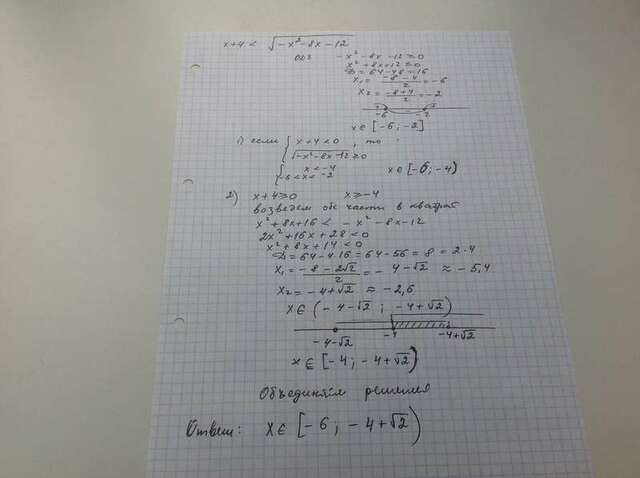 x+4 < √-x²-8x-12
ОДЗ -x²-8x-12≥0
x²+8x+12≤0
D=64-48=16
x₁= -8-4/2 = -6
x₂= -8+4/2 = -2
-6 -2
x∈[-6; -2]
1) если { x+4<0 , то
√-x²-8x-12≥0
{ x<-4
-6≤x≤-2 x∈[-6; -4)
2) x+4≥0 x≥-4
возведем обе части в квадрат
x²+8x+16< -x²-8x-12
2x²+16x+28<0
x²+8x+14<0
D=64-4·16=64-56=8=2·4
x₁= -8-2√2/2 = -4-√2 ≈ -5,4
x₂= -4+√2 ≈ -2,6
x∈(-4-√2; -4+√2)
-4-√2 -4 -4+√2
x∈[-4; -4+√2)
Объединяем решения
Ответ: x∈[-6; -4+√2)